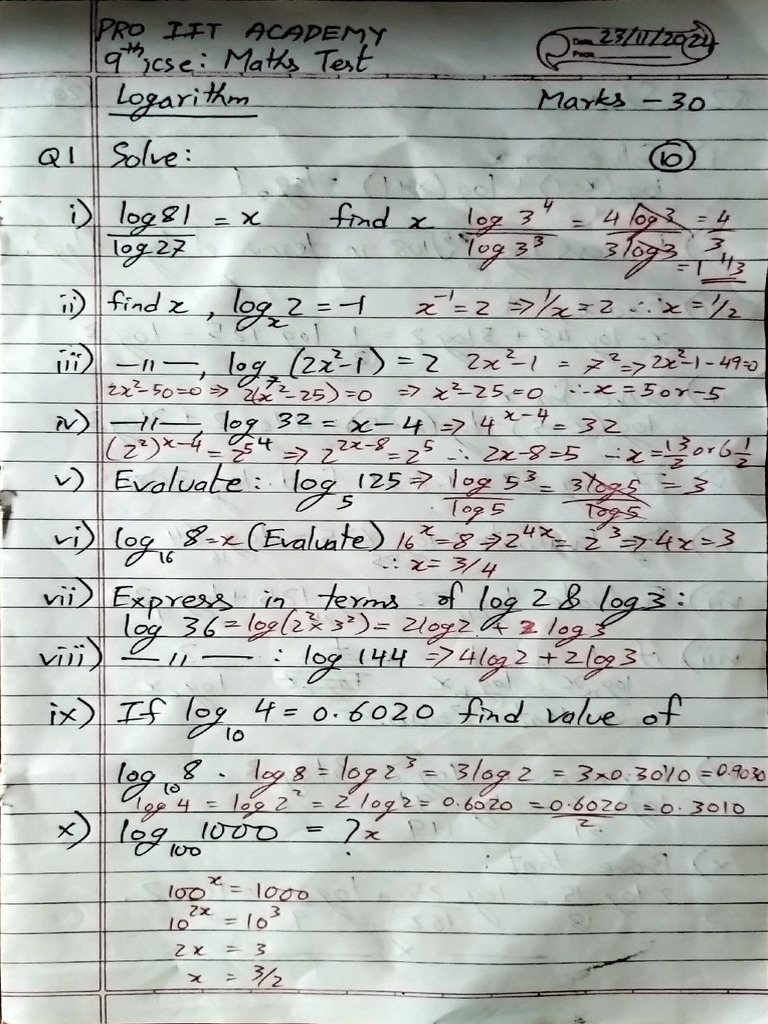 PRO IIT ACADEMY
9th icse: Maths Test
Date 23/11/2024
Page
Logarithm Marks - 30
Q1 Solve: 10
i) log 81 / log 27 = x find x log 3⁴ / log 3³ = 4 log 3 / 3 log 3 = 4/3
= 1 1/3
ii) find x, logₓ 2 = -1 x⁻¹ = 2 ⇒ 1/x = 2 ∴ x = 1/2
iii) —11—, log₇ (2x²-1) = 2 2x²-1 = 7² ⇒ 2x²-1-49=0
2x²-50=0 ⇒ 2(x²-25)=0 ⇒ x²-25=0 ∴ x = 5 or -5
iv) —11—, log₄ 32 = x-4 ⇒ 4ˣ⁻⁴ = 32
(2²)ˣ⁻⁴ = 2⁵ ⇒ 2²ˣ⁻⁸ = 2⁵ ∴ 2x-8=5 ∴ x = 13/2 or 6 1/2
v) Evaluate: log₅ 125 ⇒ log 5³ / log 5 = 3 log 5 / log 5 = 3
vi) log₁₆ 8 = x (Evaluate) 16ˣ = 8 ⇒ 2⁴ˣ = 2³ ⇒ 4x = 3
∴ x = 3/4
vii) Express in terms of log 2 & log 3:
log 36 = log(2² x 3²) = 2log2 + 2 log 3
viii) —11— : log 144 ⇒ 4log2 + 2log3
ix) If log₁₀ 4 = 0.6020 find value of
log₁₀ 8 . log 8 = log 2³ = 3 log 2 = 3x0.3010 = 0.9030
log 4 = log 2² = 2 log 2 = 0.6020 = 0.6020/2 = 0.3010
x) log₁₀₀ 1000 = ? x
100ˣ = 1000
10²ˣ = 10³
2x = 3
x = 3/2